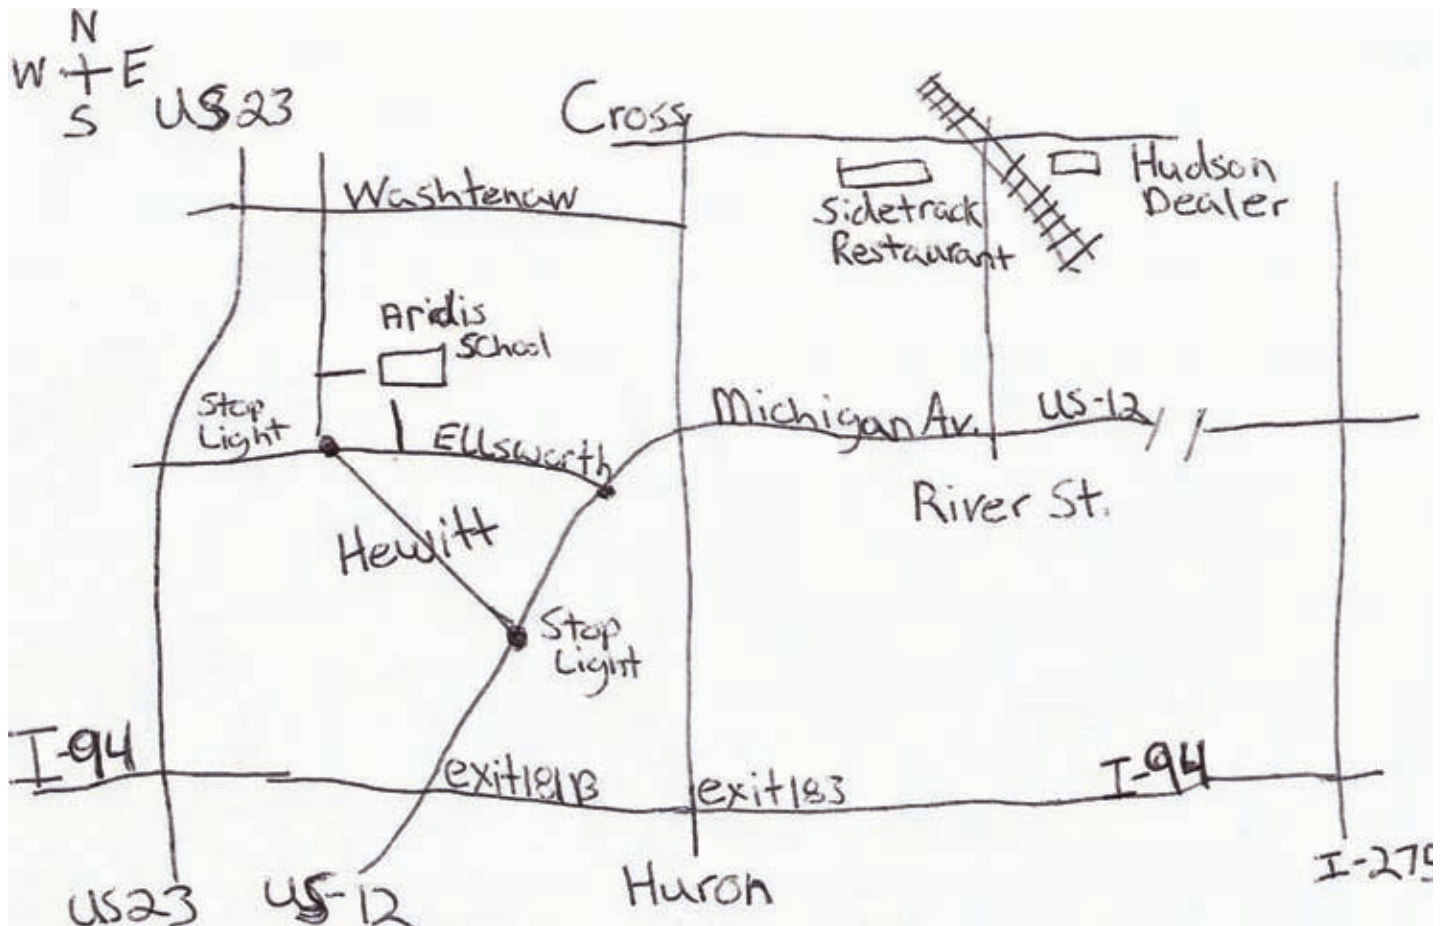 N
W E
S
US23
Cross
Washtenaw
Sidetrack
Restaurant
Hudson
Dealer
Aridis
School
Stop
Light
Ellsworth
Michigan Av.
US-12
River St.
Hewitt
Stop
Light
I-94
exit181B
exit183
I-94
US23
US-12
Huron
I-275